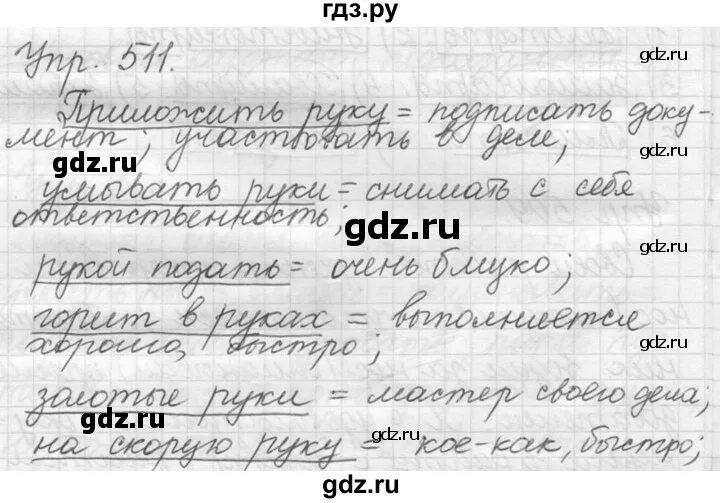 гдз.ру
gdz.ru
Упр. 511.
gdz.ru
Приложить руку = подписать доку-
мент; участвовать в деле;
gdz.ru
gdz.ru
умывать руки = снимать с себя
ответственность;
gdz.ru
gdz.ru
рукой подать = очень близко;
gdz.ru
горит в руках = выполняется
хорошо, быстро;
gdz.ru
золотые руки = мастер своего дела;
gdz.ru
на скорую руку = кое-как, быстро;
gdz.ru
gdz.ru